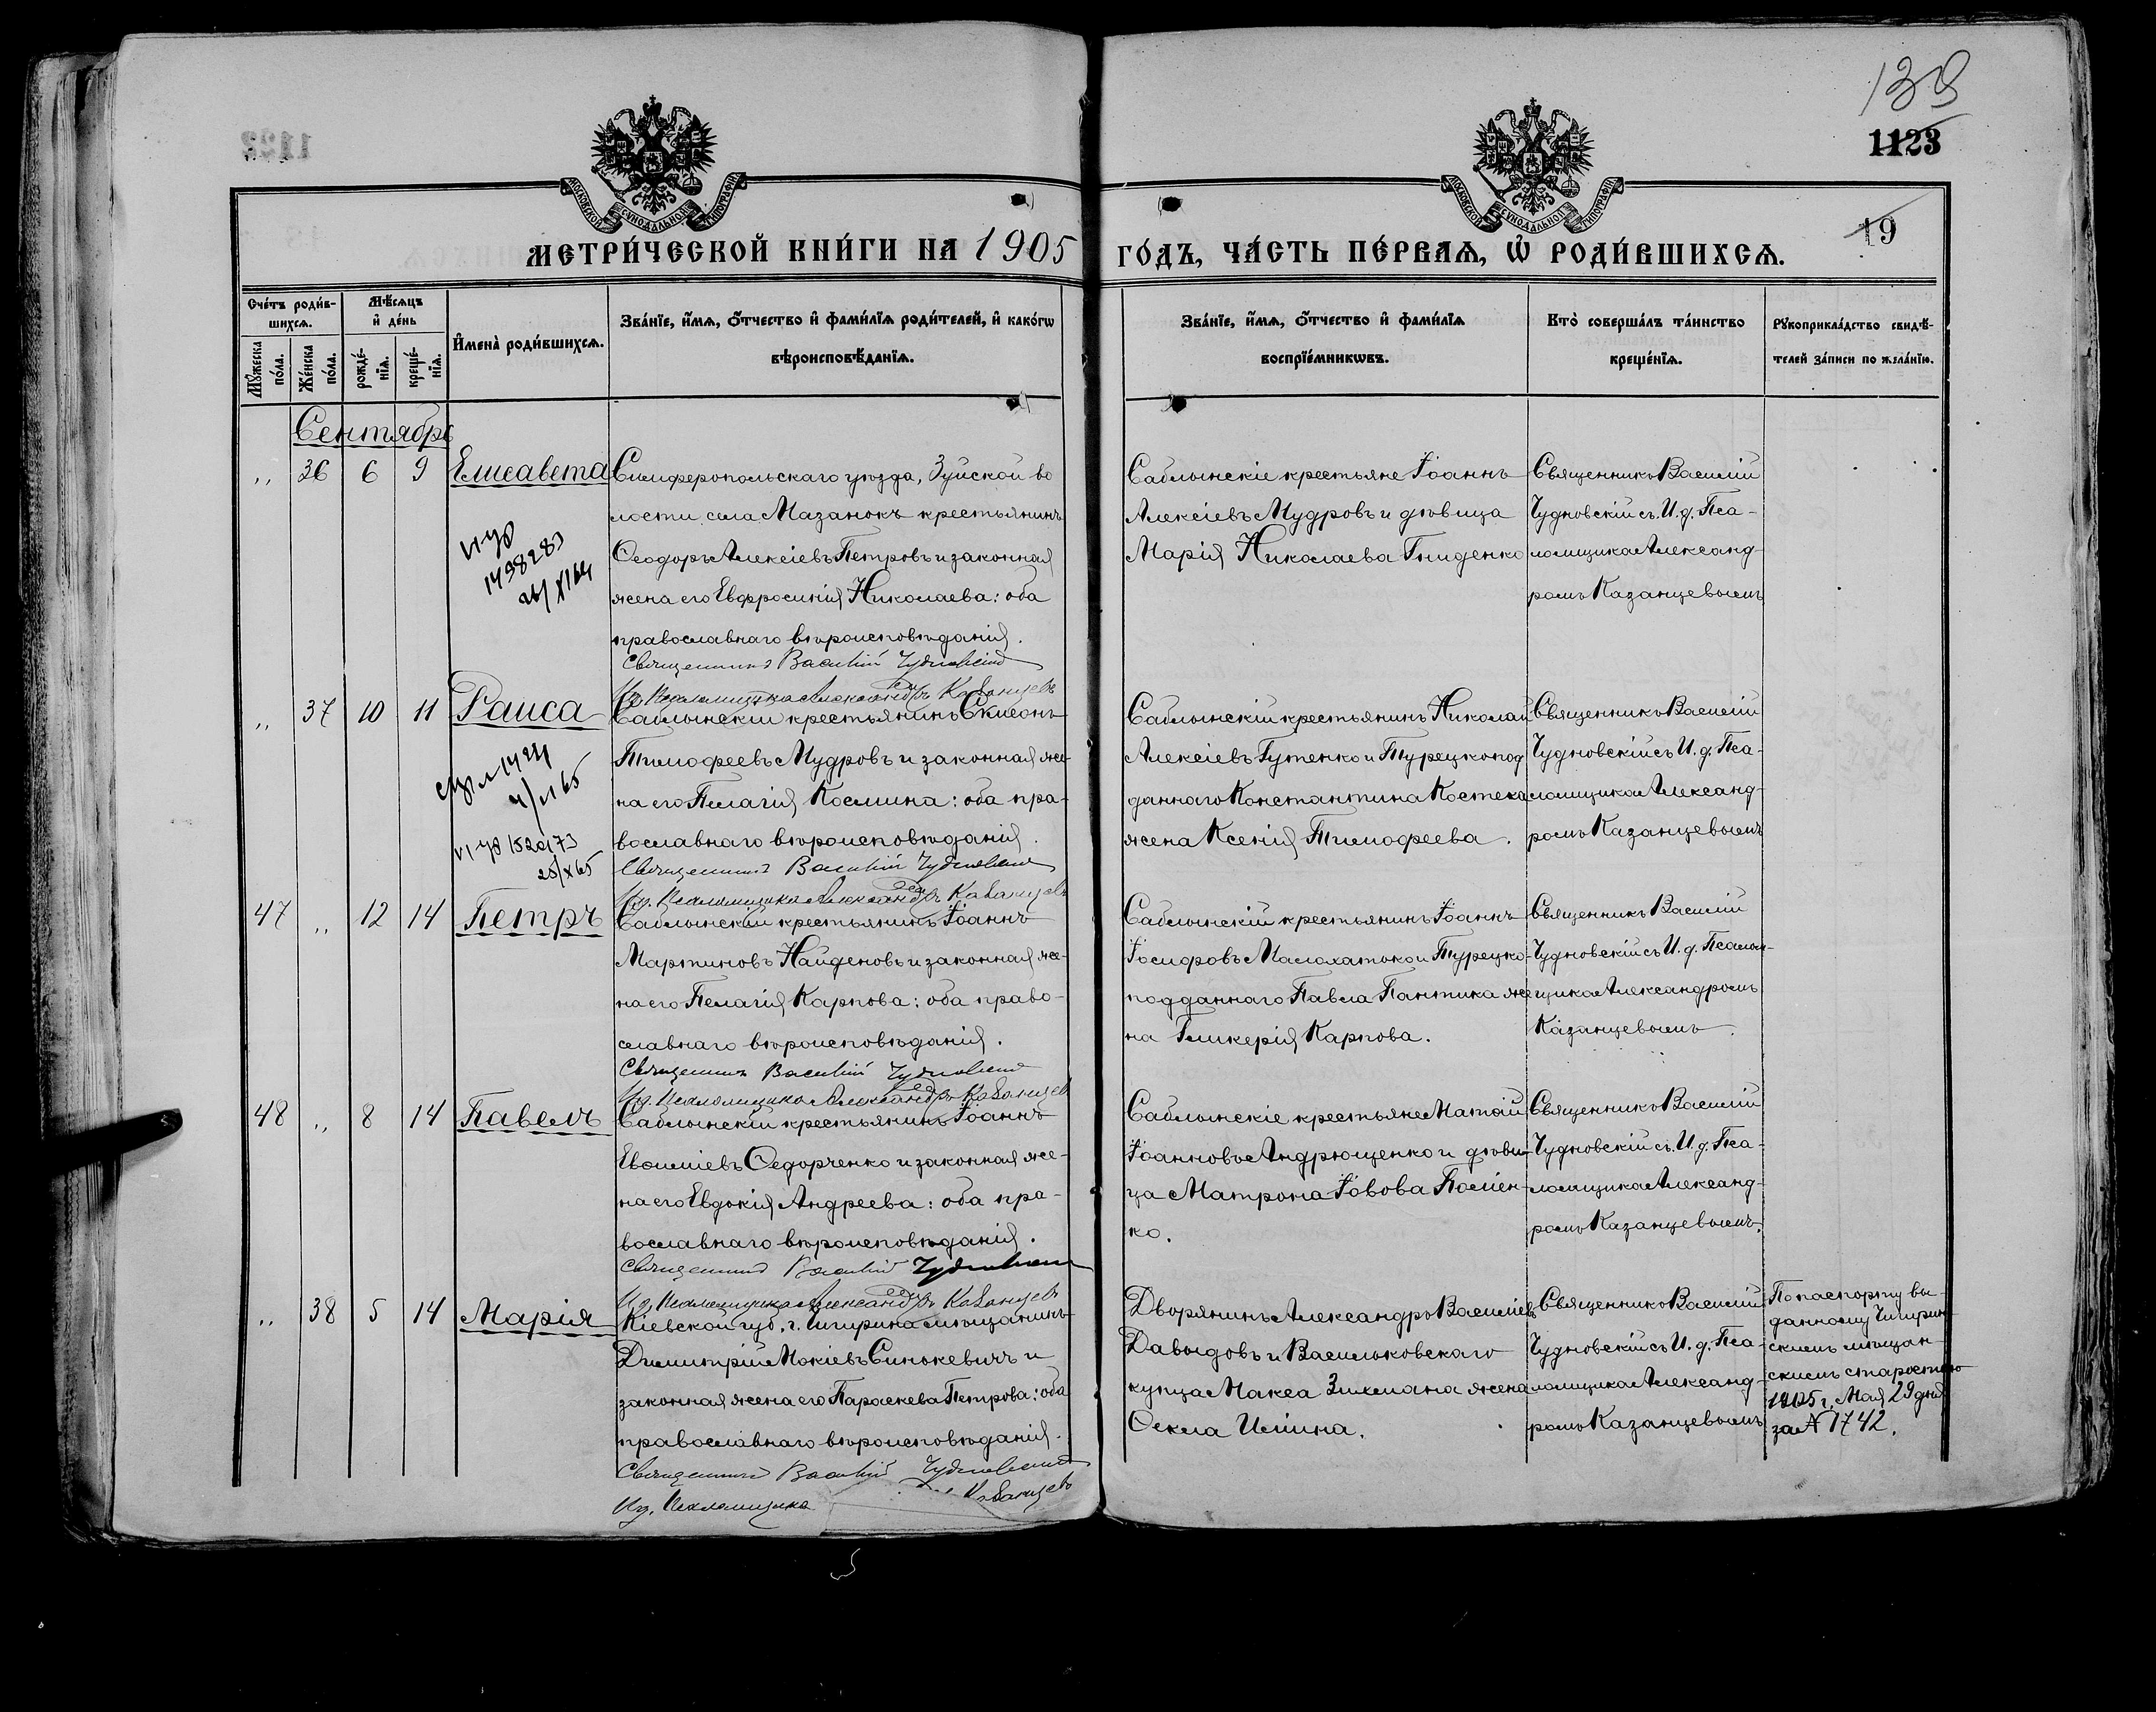 139
1123
19
МОСКОВСКОЙ СѴНОДАЛЬНОЙ ТИПОГРАФІИ
МОСКОВСКОЙ СѴНОДАЛЬНОЙ ТИПОГРАФІИ
МЕТРИ́ЧЕСКОЙ КНИ́ГИ НА 1905 ГО́ДЪ, ЧА́СТЬ ПЕ́РВАѦ, Ѽ РОДИ́ВШИХСѦ.
Сче́тъ роди́в-
шихсѧ.
Мꙋ́жеска по́ла.
Же́нска по́ла.
Мѣ́сѧцъ и҆ де́нь
рожде́-нїѧ.
креще́-нїѧ.
И҆мена̀ роди́вшихсѧ.
Зва́нїе, и҆́мѧ, ѻ҆́тчество и҆ фами́лїѧ роди́телей, и҆ како́гѡ
вѣроисповѣ́данїѧ.
Зва́нїе, и҆́мѧ, ѻ҆́тчество и҆ фами́лїѧ
воспрїе́мникѡвъ.
Кто̀ соверша́лъ та́инство
креще́нїѧ.
Рꙋкоприкла́дство свидѣ́-
телей за́писи по жела́нїю.
Сентябрь
,, 36 6 9 Елисавета
Симферопольскаго уѣзда, Зуйской во
лости, села Мазанокъ крестьянинъ
Ѳеодоръ Алексіевъ Петровъ и законная
жена его Евфросинія Николаева: оба
православнаго вѣроисповѣданія.
Священникъ Василій Чудновскій
И.д. Псаломщика Александръ Казанцевъ
Саблынскіе крестьяне Іоаннъ
Алексіевъ Мудровъ и дѣвица
Марія Николаева Гниденко
Священникъ Василій
Чудновскій съ И. д. Пса-
ломщика Александ-
ромъ Казанцевымъ
1498283
,, 37 10 11 Раиса
Саблынскій крестьянинъ Симеонъ
Тимофеевъ Мудровъ и законная же-
на его Пелагія Космина: оба пра-
вославнаго вѣроисповѣданія.
Священникъ Василій Чудновскій
И.д. Псаломщика Александръ Казанцевъ
Саблынскій крестьянинъ Николай
Алексіевъ Гутенко и Турецкопод
даннаго Константина Костека
жена Ксенія Тимофеева.
Священникъ Василій
Чудновскій съ И. д. Пса-
ломщика Александ-
ромъ Казанцевымъ
47 ,, 12 14 Петръ
Саблынскій крестьянинъ Іоаннъ
Мартиновъ Найденовъ и законная же-
на его Пелагія Карпова: оба право-
славнаго вѣроисповѣданія.
Священникъ Василій Чудновскій
И.д. Псаломщика Александръ Казанцевъ
Саблынскій крестьянинъ Іоаннъ
Іосифовъ Малохатько и Турецко-
подданнаго Павла Пантика же
на Гликерія Карпова.
Священникъ Василій
Чудновскій съ И. д. Псалом-
щика Александромъ
Казанцевымъ.
48 ,, 8 14 Павелъ
Саблынскій крестьянинъ Іоаннъ
Евѳиміевъ Ѳедорченко и законная же-
на его Евдокія Андреева: оба пра-
вославнаго вѣроисповѣданія.
Священникъ Василій Чудновскій
И.д. Псаломщика Александръ Казанцевъ
Саблынскіе крестьяне Матѳій
Іоанновъ Андрющенко и дѣви-
ца Матрона Іовова
ко.
Священникъ Василій
Чудновскій съ И. д. Пса-
ломщика Александ-
ромъ Казанцевымъ.
,, 38 5 14 Марія
Кіевской губ. г. Чигирина мѣщанинъ
Димитрій Мокіевъ Синькевичъ и
законная жена его Параскева Петрова: оба
православнаго вѣроисповѣданія.
Священникъ Василій Чудновскій
И.д. Псаломщика Казанцевъ
Дворянинъ Александръ Василіевъ
Давыдовъ и Васильковскаго
купца Макса Зикмана жена
Ѳекла Иліина.
Священникъ Василій
Чудновскій съ И. д. Пса-
ломщика Александ-
ромъ Казанцевымъ
По паспорту вы-
данному Чигирин-
скимъ мѣщан-
скимъ старостою
1905 г. Мая 29 дня
за № 1742.